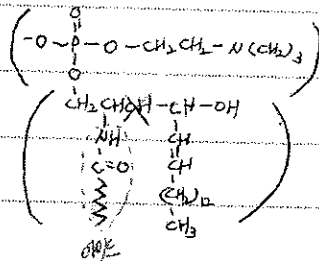 O
-O-P-O-CH₂CH₂-N(CH₃)₃
O
CH₂CH-CH-OH
NH CH
C=O CH
(CH₂)₁₂
CH₃